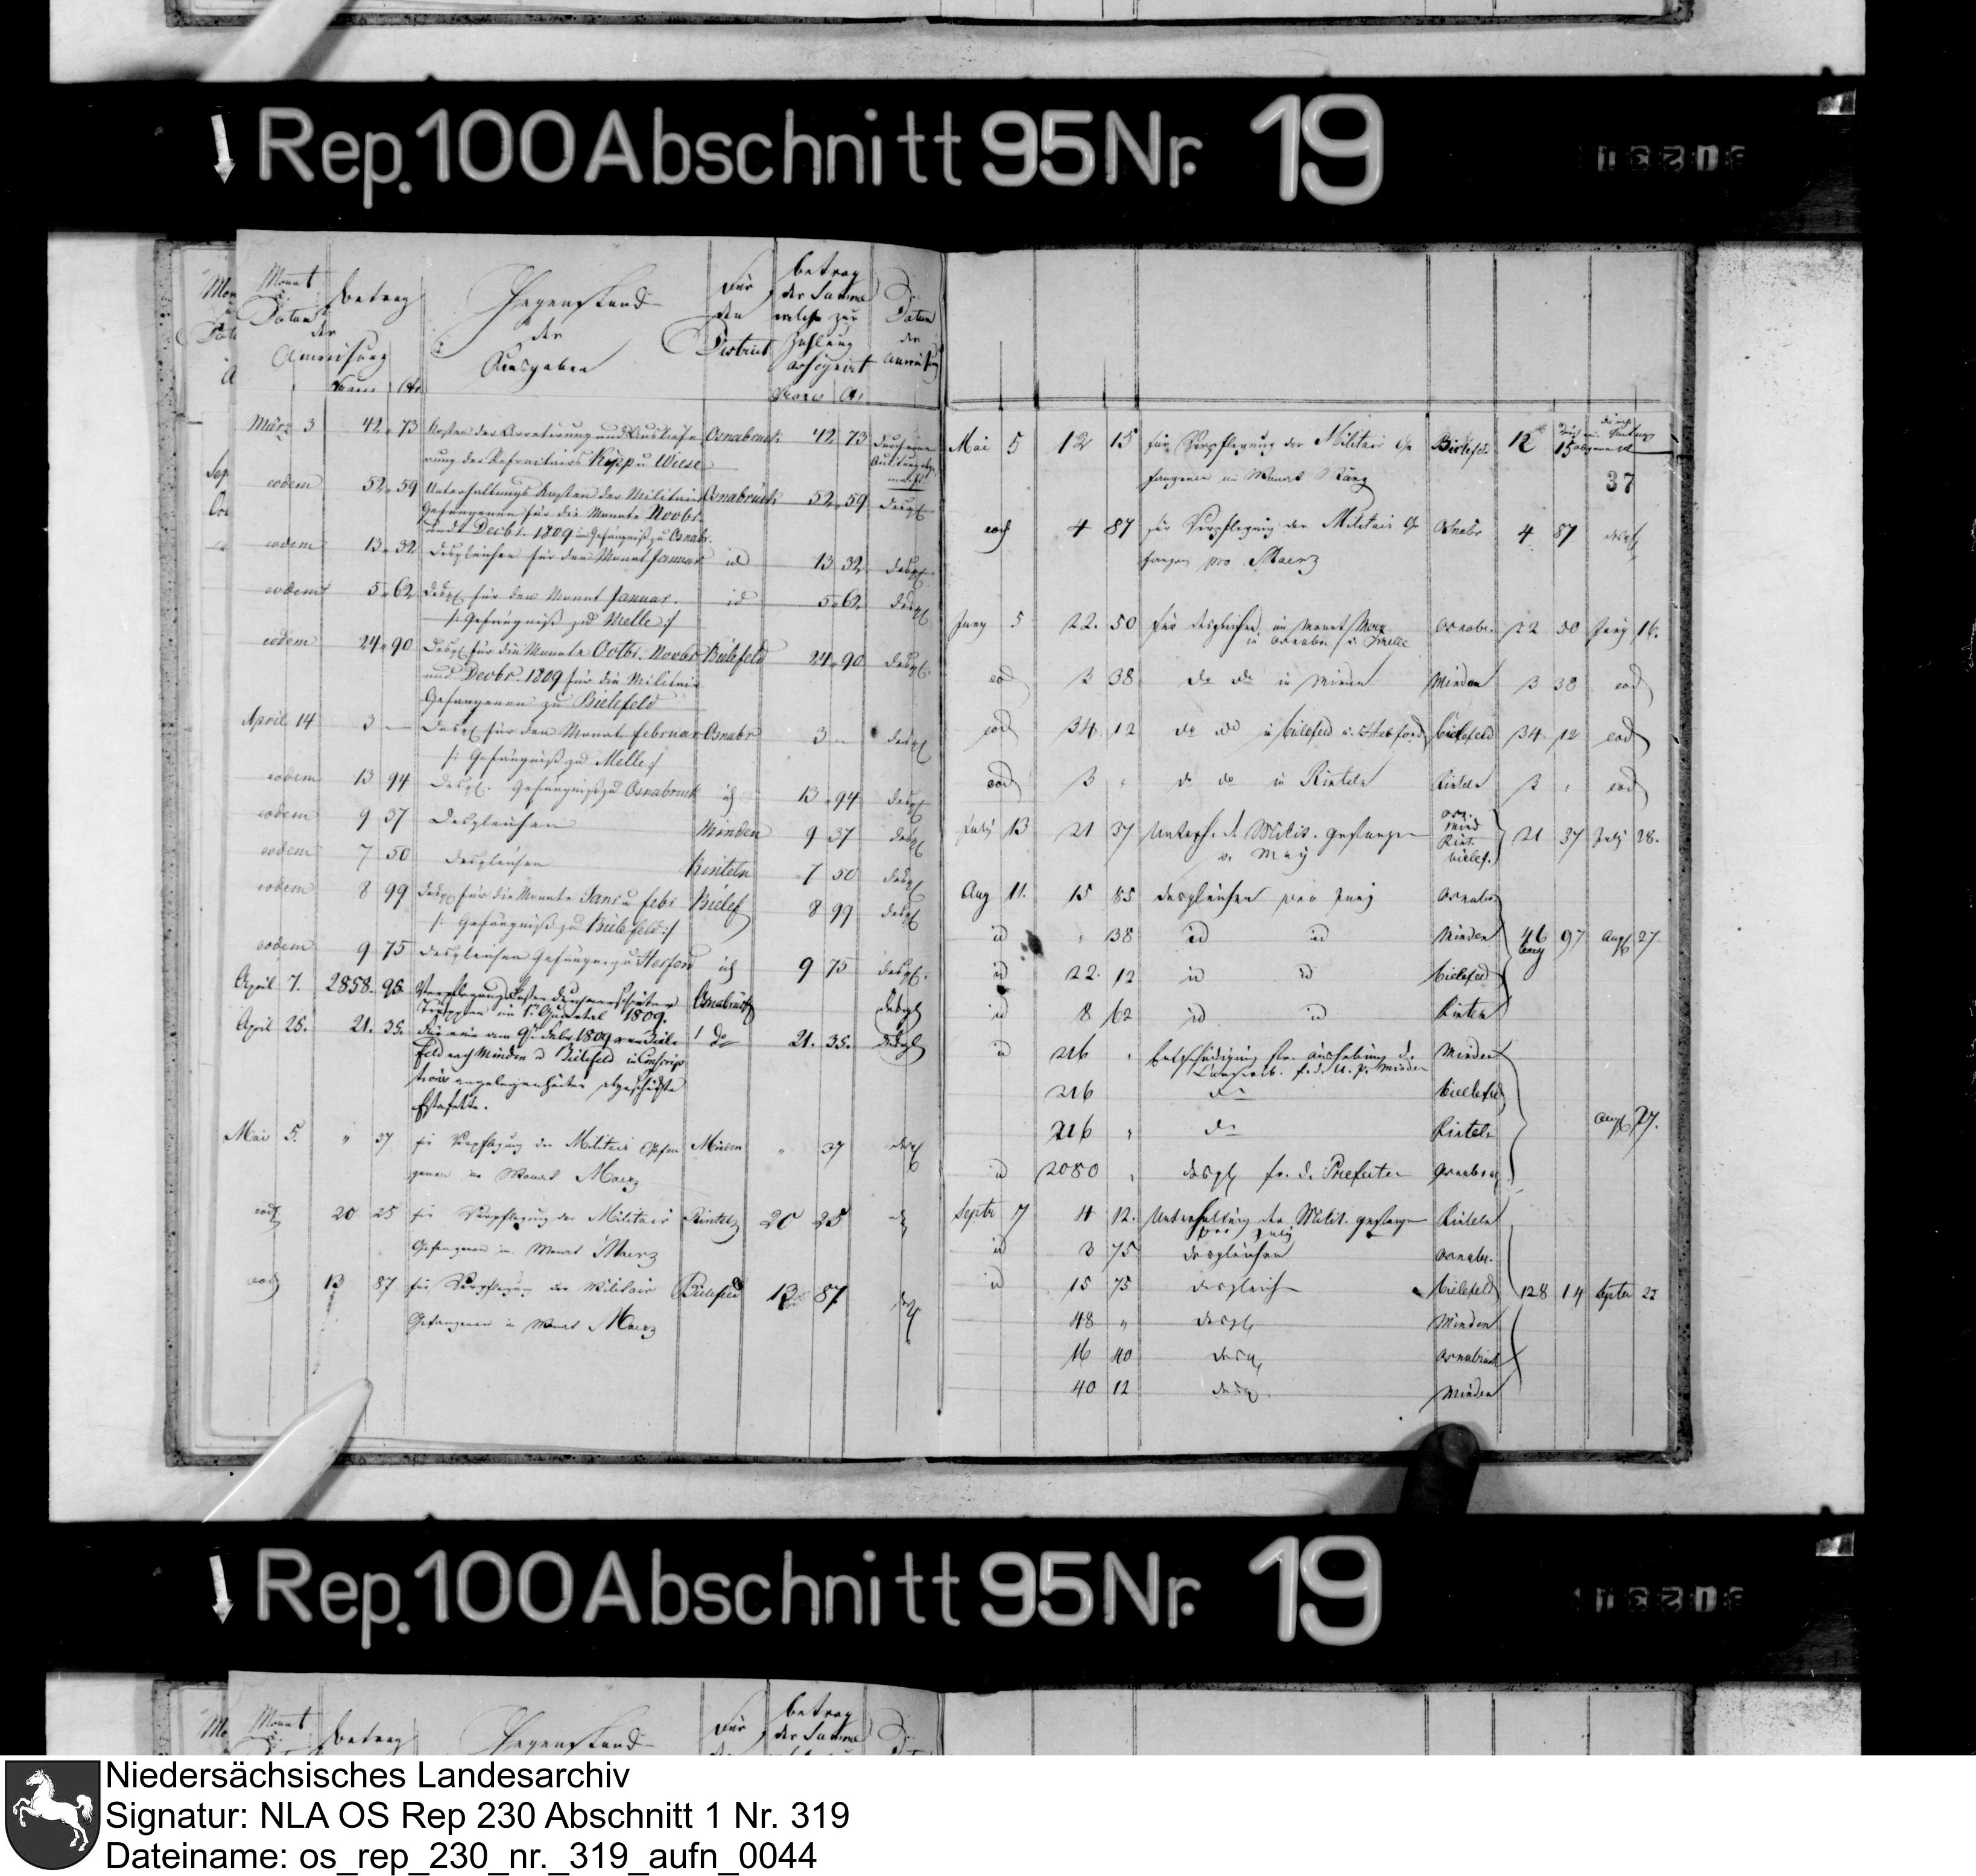 Rep. 100 Abschnitt 95 Nr. 19
Monat Betrag Gegenstand Für Betrag
Datum der der den der Summe Datum
der Ausgaben District welche zur der
Anweisung Zahlung Anweisung
assignirt
März 3 42 73 Kosten der Arretirung und Ausliefe Osnabruck 42 73
rung der Refractairs Kipp u Wiese
eodem 52 59 Unterhaltungs Kosten der Militair Osnabrück 52 59 desgl
Gefangenen für die Monate Novbr.
und Decbr. 1809 im Gefängniß zu Osnabr.
eodem 13 32 desgleichen für den Monat Januar id 13 32 desgl
eodem 5 62 desgl für den Monat Januar. id 5 62 desgl
/: Gefängniß zu Melle :/
eodem 24 90 desgl für die Monate Octbr. Novbr Bielefeld 24 90 desgl.
und Decbr. 1809 für die Militair
Gefangenen zu Bielefeld
April 14 3 — desgl für den Monat Februar Osnabr 3 — desgl
/: Gefängniß zu Melle :/
eodem 13 94 desgl. Gefängniß zu Osnabruck id 13 94 desgl
eodem 9 37 desgleichen Minden 9 37 desgl
eodem 7 50 desgleichen Rinteln 7 50 desgl
eodem 8 99 desgl für die Monate Jan: u Febr Bielef 8 99 desgl
/: Gefängniß zu Bielefeld :/
eodem 9 75 desgleichen Gefangene zu Herford id 9 75 desgl.
April 7. 2858. 98 Verpflegungs Kosten durchmarschirter Osnabrück desgl
Truppen im 1n Quartal 1809.
April 25. 21. 35. für eine am 9t Febr. 1809 von Biele- do 21. 35. desgl
feld nach Minden u Bielefeld in Conscrip
tions angelegenheiten abgeschickte
Estafette.
Mai 5. " 37 für Verpflegung der Militair Gefan Minden " 37 desgl
genen im Monat Maerz
eod 20 25 für Verpflegung der Militair Rinteln 20 25
Gefangenen im Monat Maerz
eod 13 87 für Verpflegung der Militair Bielefeld 13 87 desgl
Gefangenen im Monat Maerz
Mai 5 12 15 für Verpflegung der Militair Ge Bielefeld 12 15
fangenen im Monat März
37
eod 4 87 für Verpflegung der Militair Ge Osnabr 4 87 desgl
fangen pro Maerz
Juny 5 22. 50 für desgleichen im Monat Osnabr. 22 50 Juny 16.
in Osnabr. u. Melle
eod 3 38 do do in Minden Minden 3 38 eod
eod 34 12 do do in Bielefeld u. Herford Bielefeld 34 12 eod
eod 3 " do do in Rinteln Rinteln 3 " eod
July 13 21 37 Unterh. d. Milit. gefangen Osn. Mind Rint. Bielef. 21 37 July 28.
v. May
Aug 11. 15 85 desgleichen pro Juny Osnabr
id " 38 id id Minden 46 97 Aug 27.
id 22. 12 id id Bielefeld
id 8 62 id id Rinteln
id 216 " Entschädigung für Aushebung d. Minden
Conscrib. f. d. U. P. Minden
216 do Bielefeld
216 " do Rinteln Aug 27.
id 2080 " desgl für d. Prefectur Osnabrug
Septr 7 4 12. Unterhaltung der Milit. gefangen Rinteln
pro July
id 3 75 desgleichen Osnabr.
id 15 75 desgleich Bielefeld 128 14 Septr 22
48 " desgl Minden
16 40 desgl Osnabrück
40 12 desgl. Minden
Rep. 100 Abschnitt 95 Nr. 19
Monat Betrag Gegenstand Für Betrag
der Summe
Niedersächsisches Landesarchiv
Signatur: NLA OS Rep 230 Abschnitt 1 Nr. 319
Dateiname: os_rep_230_nr._319_aufn_0044